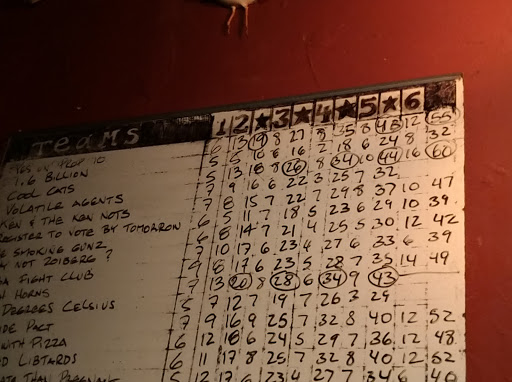 TEAMS 1 2 ★ 3 ★ 4 ★ 5 ★ 6
YES ON PROP 10 6 13 19 8 27 8 35 8 43 12 55
1.6 BILLION 5 6 16 2 18 6 24 8 32
COOL CATS 5 13 18 8 26 8 34 10 44 16 60
VOLATILE AGENTS 7 9 16 6 22 3 25 7 32
KEN & THE KEN NOTS 8 15 7 22 7 29 8 37 10 47
REGISTER TO VOTE BY TOMORROW 6 5 11 7 18 5 23 6 29 10 39
SMOKING GUNZ 6 8 14 7 21 4 25 5 30 12 42
NOT ZOIDBERG? 7 10 17 6 23 4 27 6 33 6 39
FIGHT CLUB 9 8 17 6 23 5 28 7 35 14 49
HORNS 7 13 20 8 28 6 34 9 43
DEGREES CELSIUS 5 7 12 7 19 7 26 3 29
PACT 7 9 16 9 25 7 32 8 40 12 52
WITH PIZZA 6 12 18 6 24 5 29 7 36 12 48
LIBTARDS 6 11 17 8 25 7 32 8 40 12 52
THAN PREGNANT 5 12 17 6 23 4 27 7 34 6 40